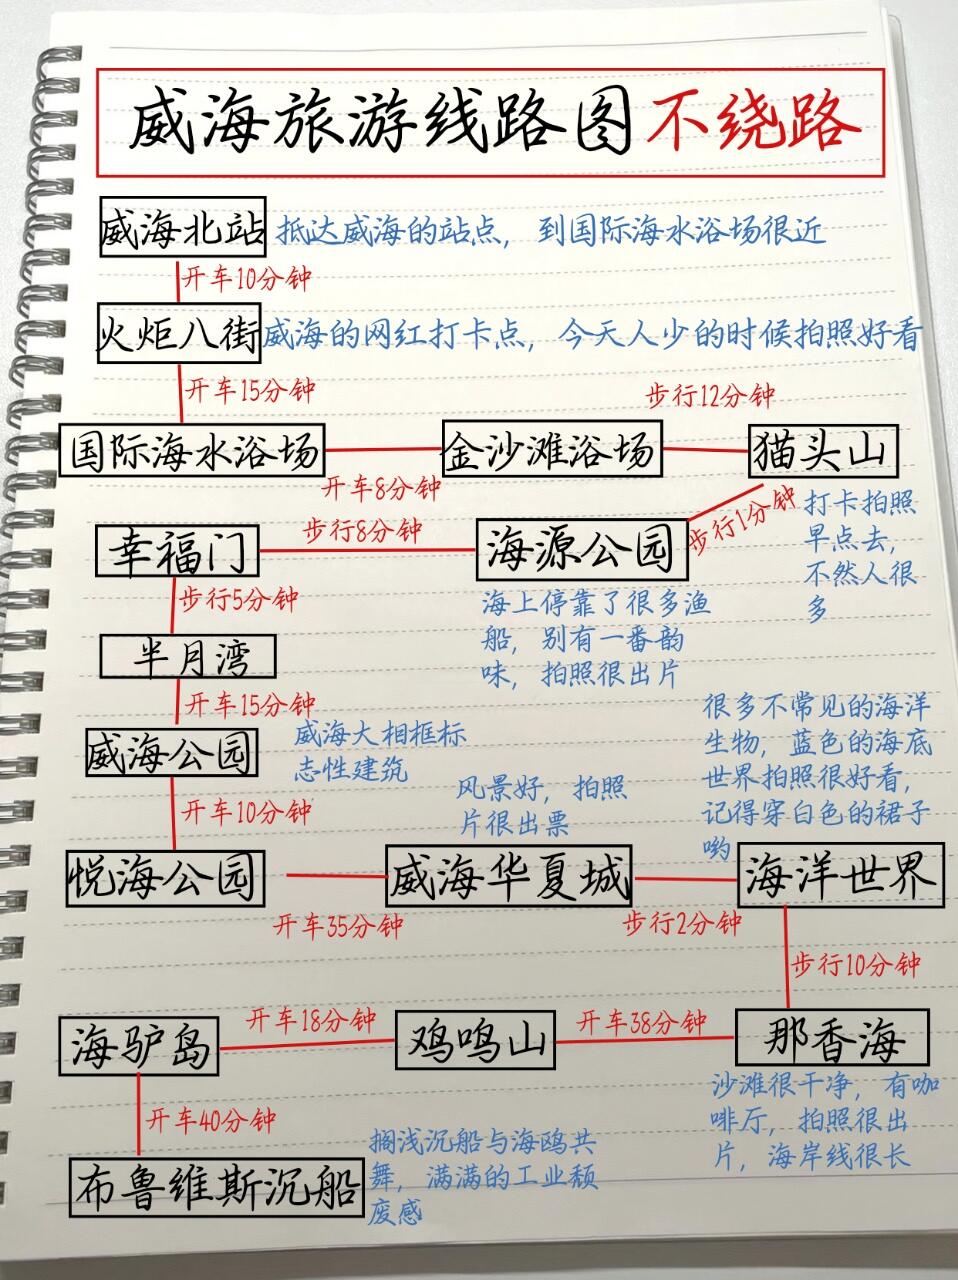 威海旅游线路图不绕路
威海北站
抵达威海的站点，到国际海水浴场很近
开车10分钟
火炬八街
威海的网红打卡点，今天人少的时候拍照好看
开车15分钟
步行12分钟
国际海水浴场
金沙滩浴场
猫头山
开车8分钟
步行1分钟
打卡拍照
早点去，
不然人很
多
步行8分钟
幸福门
海源公园
步行5分钟
海上停靠了很多渔
船，别有一番韵
味，拍照很出片
半月湾
开车15分钟
威海公园
威海大相框标
志性建筑
很多不常见的海洋
生物，蓝色的海底
世界拍照很好看，
记得穿白色的裙子
哟
开车10分钟
风景好，拍照
片很出票
悦海公园
威海华夏城
海洋世界
开车35分钟
步行2分钟
步行10分钟
海驴岛
开车18分钟
鸡鸣山
开车38分钟
那香海
沙滩很干净，有咖
啡厅，拍照很出
片，海岸线很长
开车40分钟
布鲁维斯沉船
搁浅沉船与海鸥共
舞，满满的工业颓
废感